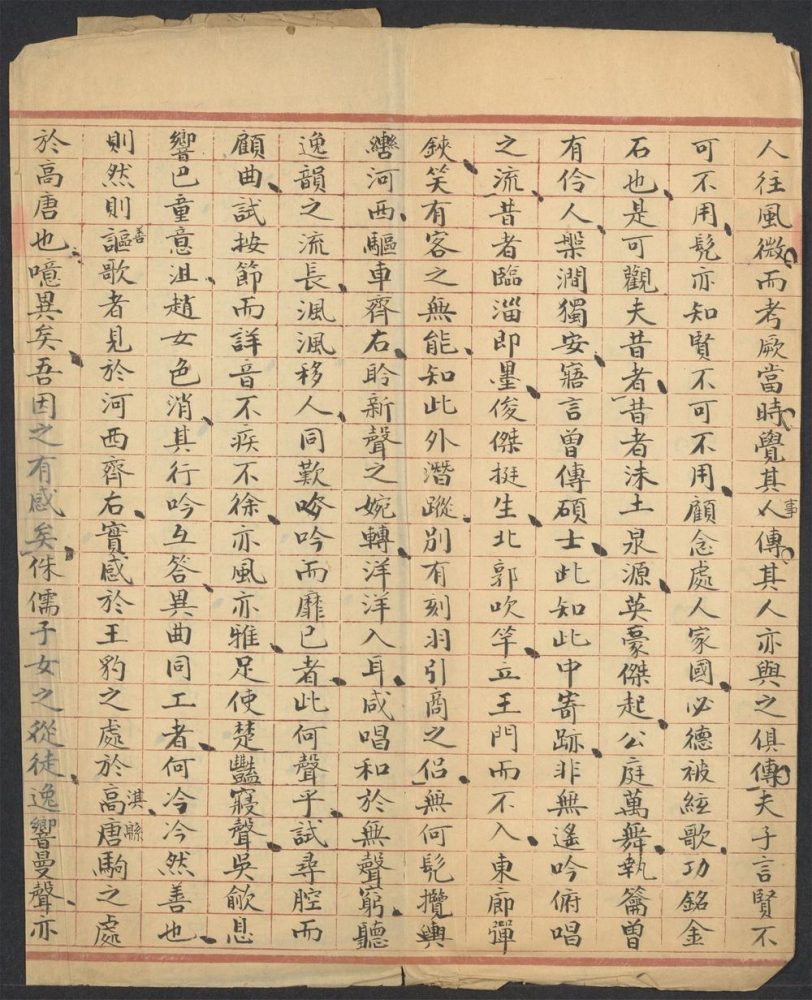 人往風微而考厥當時覺其人事傳其人亦與之俱傳夫子言賢不
可不用髡亦知賢不可不用顧念處人家國必德被絃歌功銘金
石也是可觀夫昔者昔者沬土泉源英豪傑起公庭萬舞執籥曾
有伶人槃澗獨安寤言曾傳碩士此知此中寄跡非無遙吟俯唱
之流昔者臨淄即墨俊傑挺生北郭吹竽立王門而不入東郎彈
鋏笑有客之無能知此外潛蹤別有刻羽引商之侶無何髡攬輿
轡河西驅車齊右聆新聲之婉轉洋洋入耳咸唱和於無聲窮聽
逸韻之流長渢渢移人同歎吟而靡已者此何聲乎試尋腔而
顧曲試按節而詳音不疾不徐亦風亦雅足使楚豔寢聲吳歈息
響巴童意沮趙女色消其行吟互答異曲同工者何泠泠然善也
則然則善謳歌者見於河西齊右實感於王豹之處於淇緜高唐駒之處
於高唐也噫異矣吾因之有感矣侏儒子女之從徒逸響曼聲亦